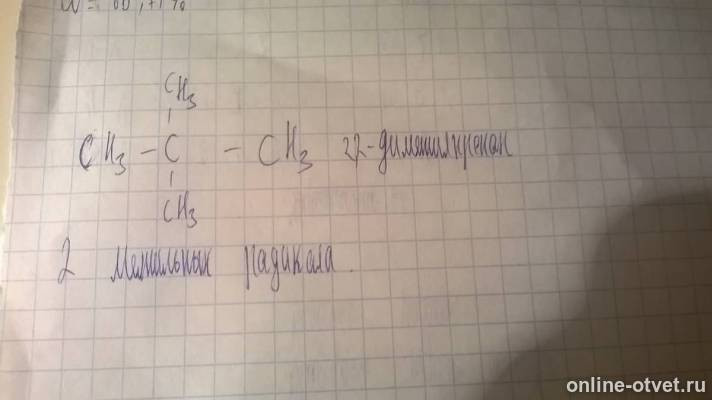 CH3
CH3 – C – CH3 22-диметилпропан
CH3
2 метильных радикала.
online-otvet.ru